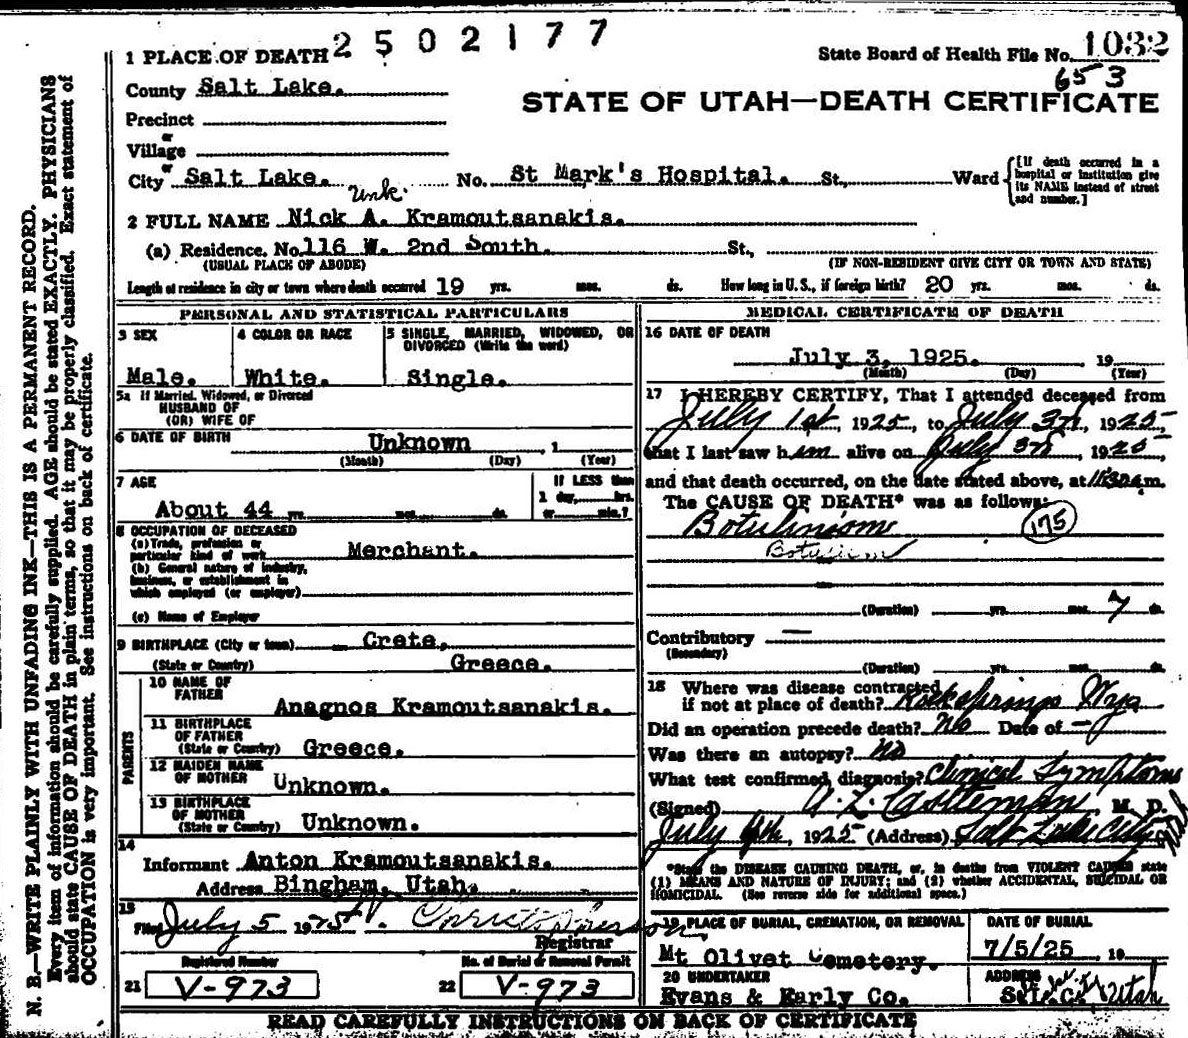 2 5 0 2 1 7 7
1 PLACE OF DEATH
State Board of Health File No. 1032
653
County Salt Lake.
STATE OF UTAH—DEATH CERTIFICATE
Precinct
or
Village
or
City Salt Lake. No. St Mark's Hospital. St., Ward
[If death occurred in a hospital or institution give its NAME instead of street and number.]
Unk.
2 FULL NAME Nick A. Kramoutsanakis.
(a) Residence. No. 116 W. 2nd South. St.,
(USUAL PLACE OF ABODE) (IF NON-RESIDENT GIVE CITY OR TOWN AND STATE)
Length of residence in city or town where death occurred 19 yrs. mos. ds. How long in U. S., if foreign birth? 20 yrs. mos. ds.
PERSONAL AND STATISTICAL PARTICULARS
3 SEX
Male.
4 COLOR OR RACE
White.
5 SINGLE, MARRIED, WIDOWED, OR
DIVORCED (Write the word)
Single.
5a If Married, Widowed, or Divorced
HUSBAND OF
(OR) WIFE OF
6 DATE OF BIRTH Unknown , 1
(Month) (Day) (Year)
7 AGE
About 44 yrs. mos. ds.
If LESS than
1 day, hrs.
or min.?
8 OCCUPATION OF DECEASED
(a) Trade, profession or
particular kind of work Merchant.
(b) General nature of industry,
business, or establishment in
which employed (or employer)
(c) Name of Employer
9 BIRTHPLACE (City or town) Crete,
(State or Country) Greece.
PARENTS
10 NAME OF
FATHER Anagnos Kramoutsanakis.
11 BIRTHPLACE
OF FATHER
(State or Country) Greece.
12 MAIDEN NAME
OF MOTHER Unknown.
13 BIRTHPLACE
OF MOTHER
(State or Country) Unknown.
14
Informant Anton Kramoutsanakis.
Address Bingham, Utah.
15
Filed July 5 1925
Registrar
Registered Number
21 V-973
No. of Burial or Removal Permit
22 V-973
MEDICAL CERTIFICATE OF DEATH
16 DATE OF DEATH
July 3, 1925. 19
(Month) (Day) (Year)
17 I HEREBY CERTIFY, That I attended deceased from
July 1st, 1925, to July 3rd, 1925,
that I last saw him alive on July 3rd, 1925
and that death occurred, on the date stated above, at 11:30 a m.
The CAUSE OF DEATH* was as follows:
Botulinism 175
Botulism
(Duration) yrs. mos. 7 ds.
Contributory —
(Secondary)
(Duration) yrs. mos. ds.
18 Where was disease contracted
if not at place of death? Rock Springs Wyo
Did an operation precede death? No Date of —
Was there an autopsy? No
What test confirmed diagnosis? Clinical Symptoms
(Signed) A. L. Castleman M. D.
July 4th, 1925 (Address) Salt Lake City
*State the DISEASE CAUSING DEATH, or, in deaths from VIOLENT CAUSES state
(1) MEANS AND NATURE OF INJURY; and (2) whether ACCIDENTAL, SUICIDAL OR
HOMICIDAL. (See reverse side for additional space.)
19 PLACE OF BURIAL, CREMATION, OR REMOVAL
Mt Olivet Cemetery.
DATE OF BURIAL
7/5/25 19
20 UNDERTAKER
Evans & Early Co.
ADDRESS
Utah
READ CAREFULLY INSTRUCTIONS ON BACK OF CERTIFICATE
N. B.—WRITE PLAINLY WITH UNFADING INK—THIS IS A PERMANENT RECORD.
Every item of information should be carefully supplied. AGE should be stated EXACTLY. PHYSICIANS
should state CAUSE OF DEATH in plain terms, so that it may be properly classified. Exact statement of
OCCUPATION is very important. See instructions on back of certificate.